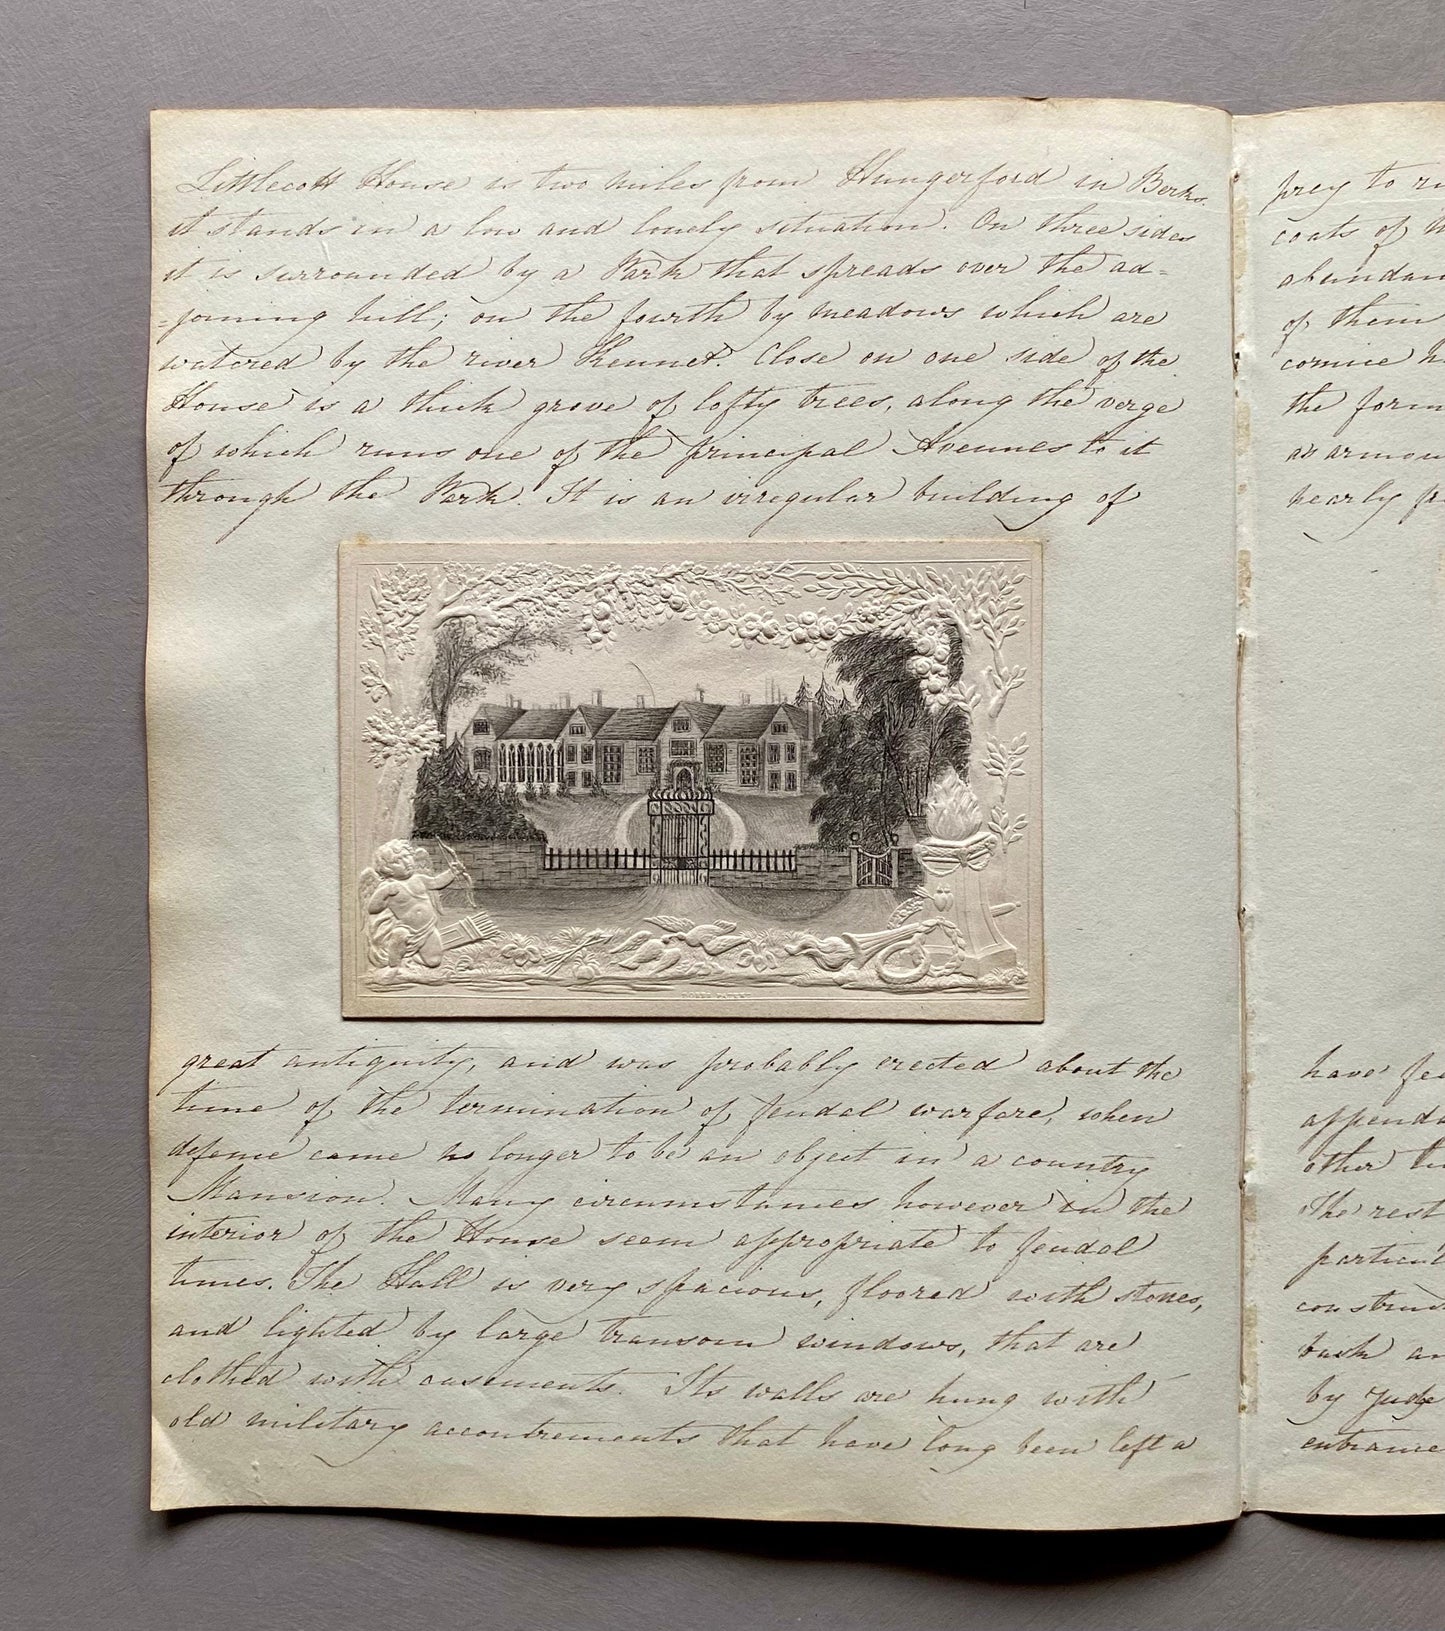 Littlecott House is two miles from Hungerford in Berks.
it stands in a low and lonely situation. On three sides
it is surrounded by a Park that spreads over the ad=
=joining hill; on the fourth by meadows which are
watered by the river Kennet. Close on one side of the
House is a thick grove of lofty trees, along the verge
of which runs one of the principal Avenues to it
through the Park. It is an irregular building of
great antiquity, and was probably erected about the
time of the termination of feudal warfare, when
defence came no longer to be an object in a country
Mansion. Many circumstances however in the
interior of the House seem appropriate to feudal
times. The Hall is very spacious, floored with stones,
and lighted by large transom windows, that are
clothed with casements. Its walls are hung with
old military accoutrements that have long been left a
prey to
coats of
of them
cornice
the form
as armou
nearly
have fee
appenda
other
The rest
particul
construc
back an
by Judge
entrance